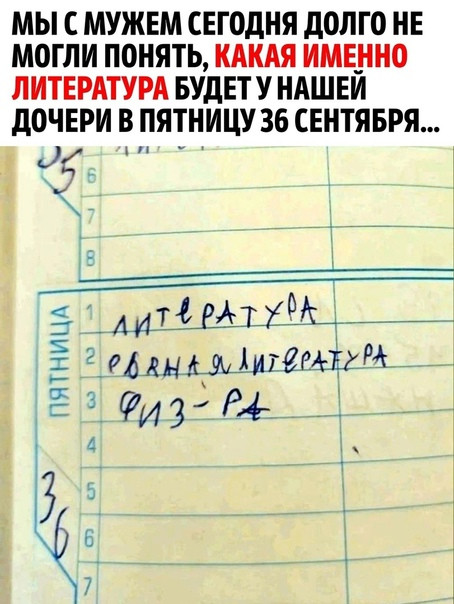 МЫ С МУЖЕМ СЕГОДНЯ ДОЛГО НЕ
МОГЛИ ПОНЯТЬ, КАКАЯ ИМЕННО
ЛИТЕРАТУРА БУДЕТ У НАШЕЙ
ДОЧЕРИ В ПЯТНИЦУ 36 СЕНТЯБРЯ...
5
6
7
8
ПЯТНИЦА
1 ЛИТЕРАТУРА
2 РВАНАЯ ЛИТЕРАТУРА
3 ФИЗ-РА
4
36
5
6
7